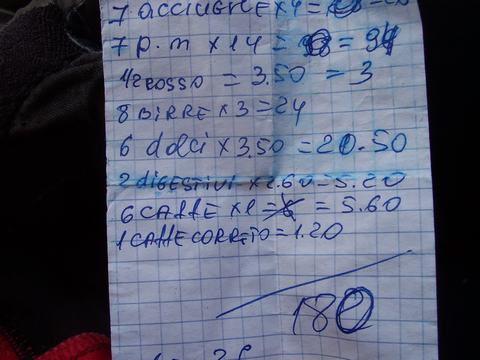 7 ACCIUGHE x4=
7 P.M x14 = = 94
1/2 ROSSO = 3.50 = 3
8 BIRRE x 3 = 24
6 dolci x 3.50 = 20.50
2 DIGESTIVI x2.60=5.20
6 CAFFE x1 = 6 = 5.60
1 CAFFE CORRETO = 1.20
180